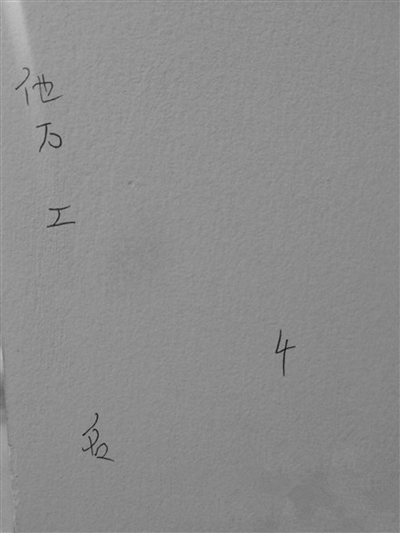 他
万
工
4
名